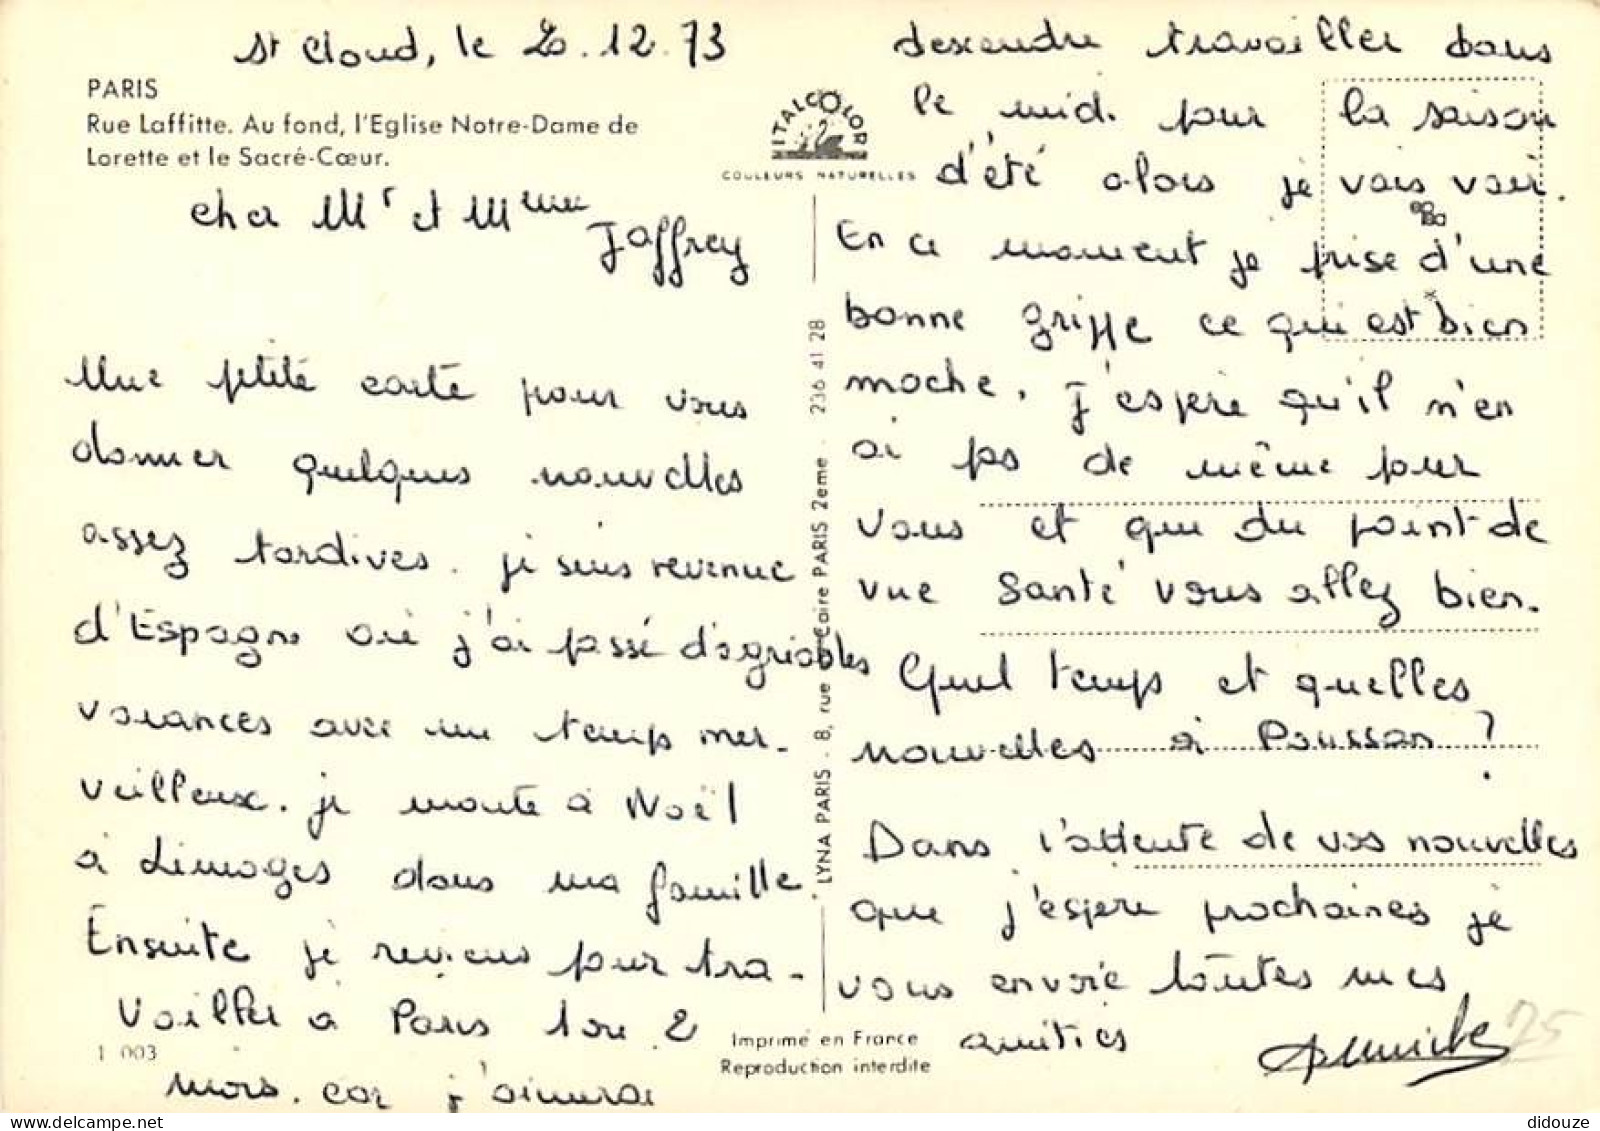 St Cloud, le 20.12.73
PARIS
Rue Laffitte. Au fond, l'Eglise Notre-Dame de
Lorette et le Sacré-Cœur.
cher Mr et Mme
Jaffrey
Une petite carte pour vous
donner quelques nouvelles
assez tardives. je suis revenue
d'Espagne où j'ai passé d'agréables
vacances avec un temps mer-
veilleux. je monte à Noël
à Limoges dans ma famille.
Ensuite je reviens pour tra-
vailler à Paris 1 ou 2
mois. car j'aimerai
1 003
ITALCOLOR
COULEURS NATURELLES
LYNA PARIS - 8, rue Caire PARIS 2eme - 236 41 28
Imprimé en France
Reproduction interdite
descendre travailler dans
le midi pour la saison
d'été alors je vais voir.
En ce moment je frise d'une
bonne grippe ce qui est bien
moche. j'espère qu'il n'en
ai pas de même pour
vous et que du point de
vue santé vous allez bien.
Quel temps et quelles
nouvelles à Poussan ?
Dans l'attente de vos nouvelles
que j'espère prochaines je
vous envoie toutes mes
amitiés
75
didouze